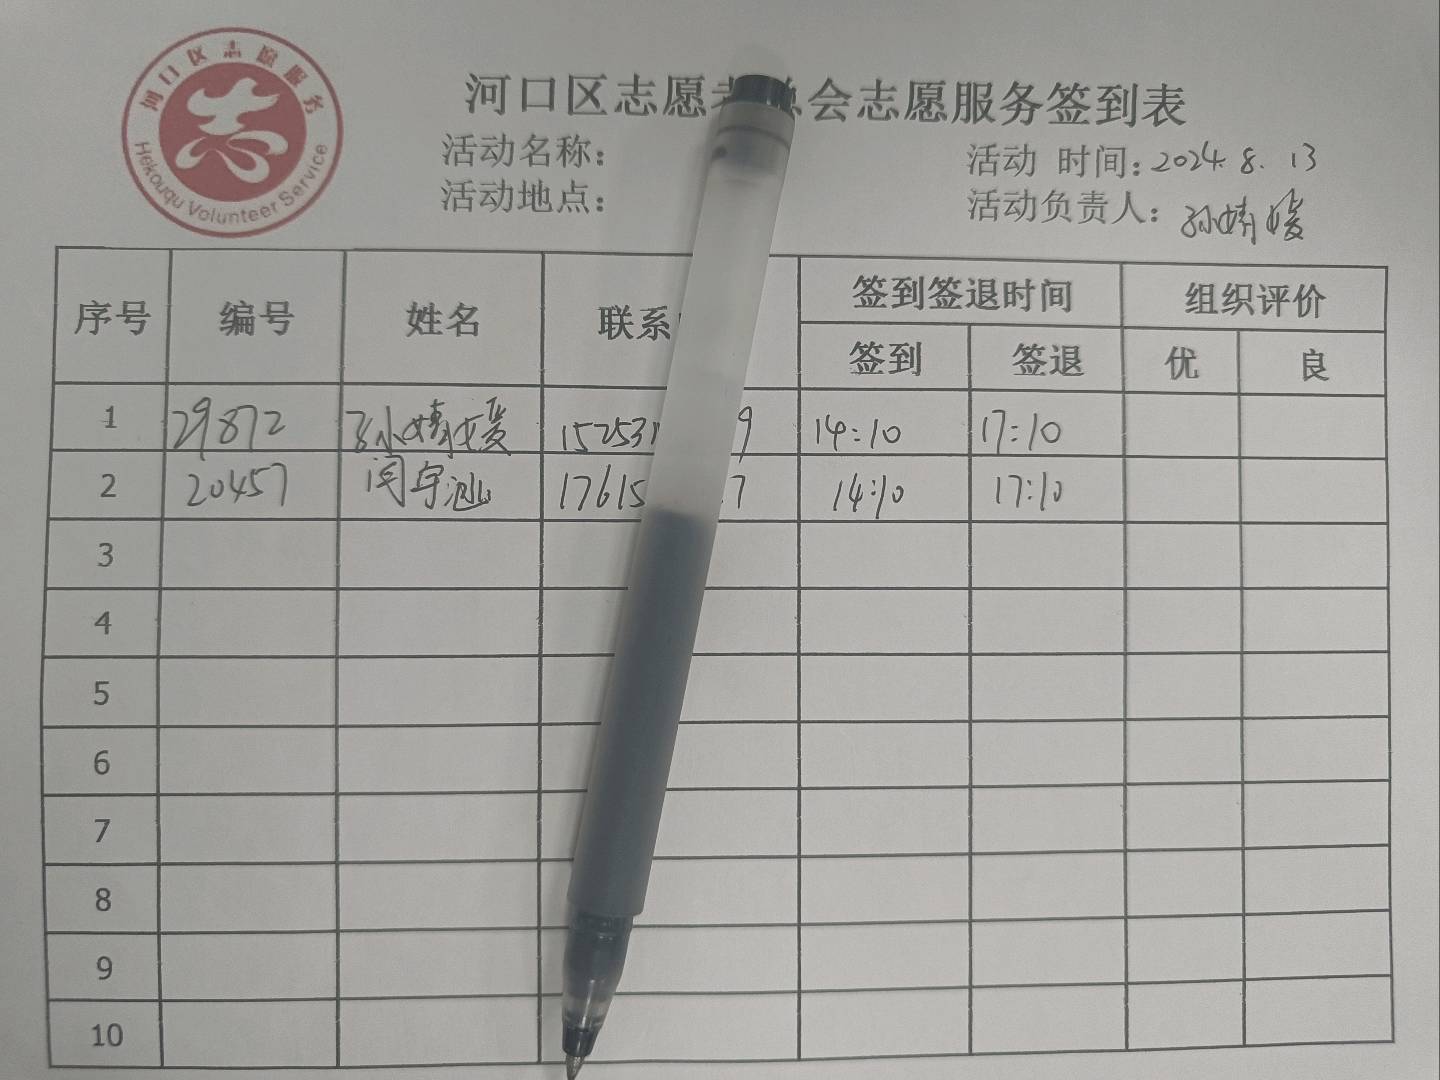 河口区志愿服务
Hekouqu Volunteer Service
河口区志愿者总会志愿服务签到表
活动名称： 活动 时间：2024.8.13
活动地点： 活动负责人：孙婧媛
序号 编号 姓名 联系 签到签退时间 组织评价
签到 签退 优 良
1 29872 孙婧媛 15253 9 14:10 17:10
2 20457 闫宇 17615 7 14:10 17:10
3
4
5
6
7
8
9
10